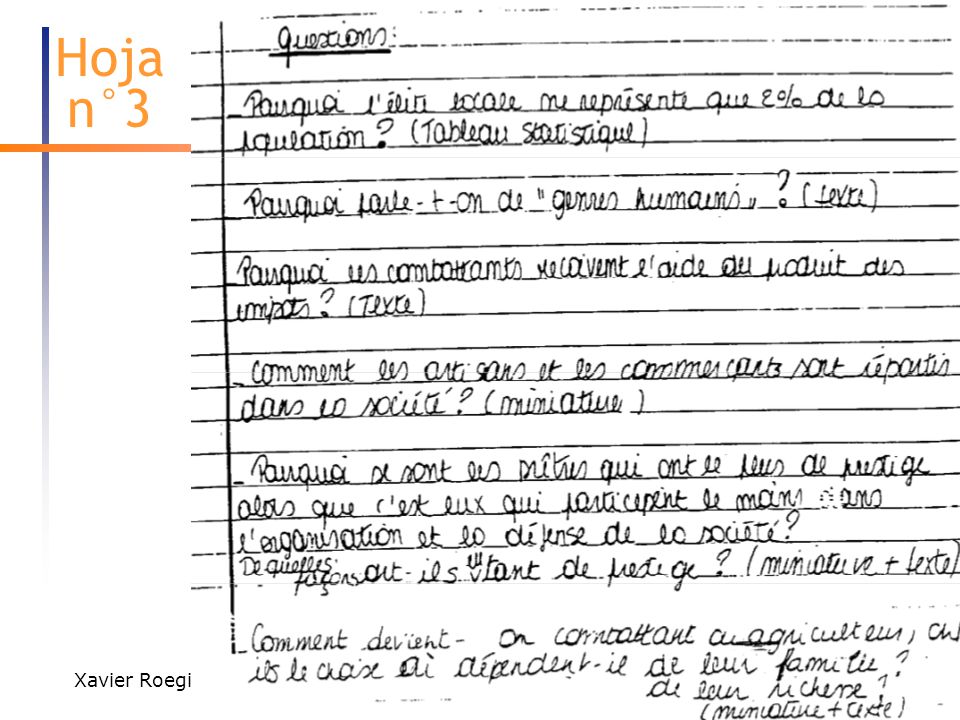 Hoja
n°3
Questions:
- Pourquoi l'élite locale ne représente que 2% de la
population? (Tableau statistique)
Pourquoi parle-t-on de "genres humains"? (texte)
Pourquoi les combattants reçoivent l'aide du produit des
impots? (Texte)
- Comment les artisans et les commerçants sont répartis
dans la société? (miniature)
- Pourquoi se sont les prêtres qui ont le plus de prestige
alors que c'est eux qui participent le moins dans
l'organisation et la défense de la société?
De quelles façons ont-ils tant de prestige? (miniature + texte)
- Comment devient-on combattant ou agriculteur,
ils le choix où dépendent-il de leur famille?
de leur richesse?
(miniature + texte)
Xavier Roegi